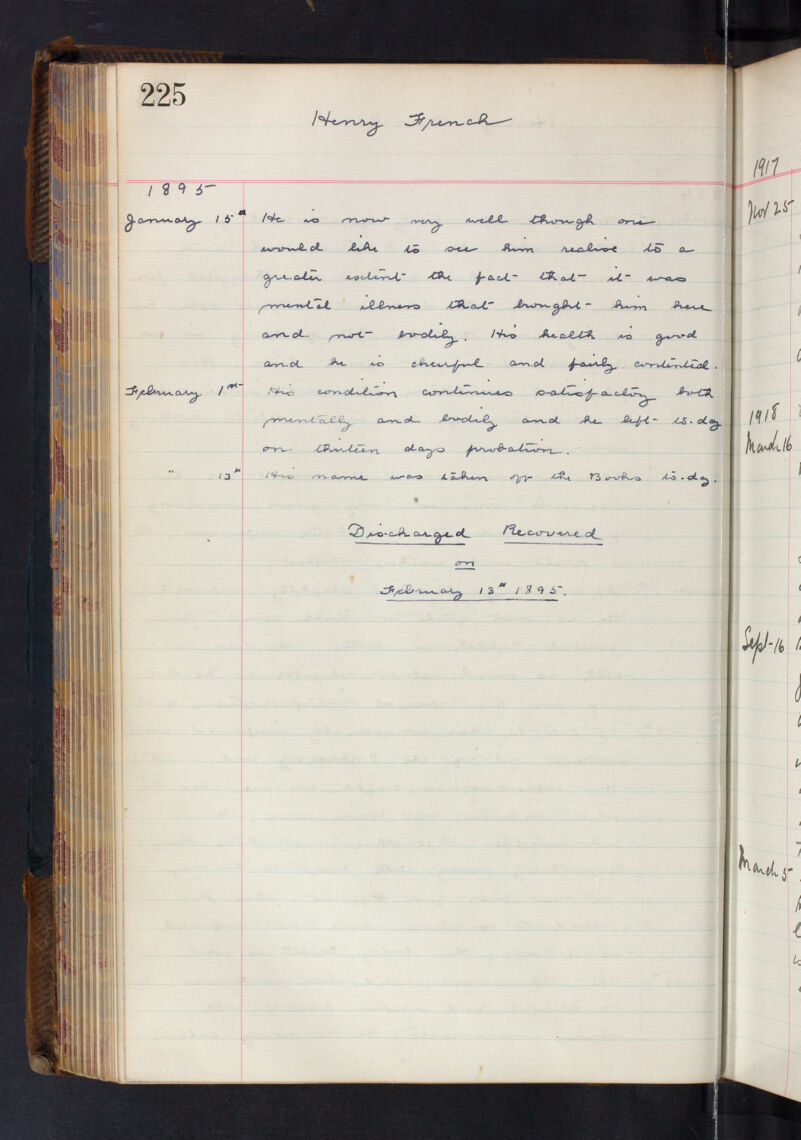 225
Henry French
1895
January 15th He is now very well though one
would like to see him realise to a
greater extent the fact that it was
mental illness that brought him here
and not bodily. His health is good
and he is cheerful and fairly contented.
February 1st His condition continues satisfactory both
mentally and bodily and he left to-day
on thirteen days probation.
" 13th His name was taken off the Books to-day.
Discharged Recovered
on
February 13th 1895.
1917
Nov 25
1918
March 16
Sept-16
March 5